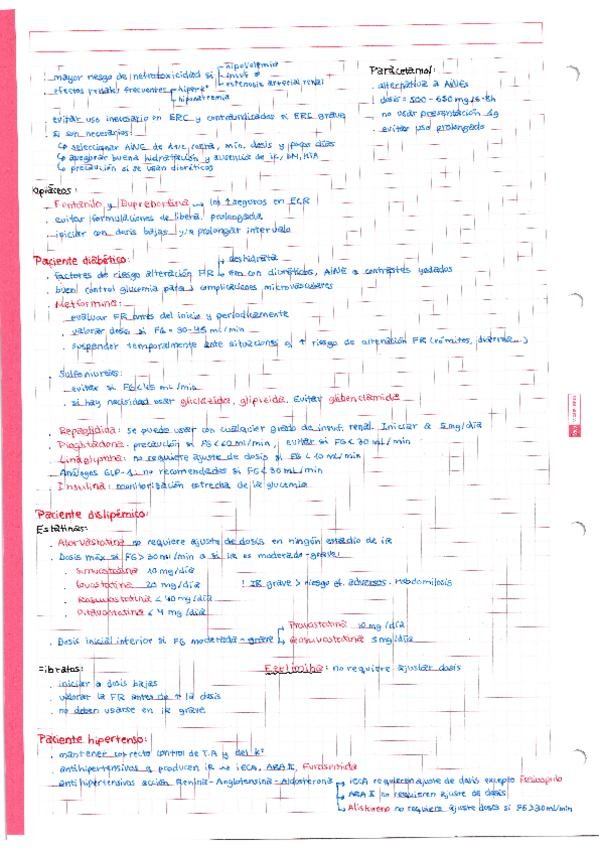 mayor riesgo de nefrotoxicidad si
hipovolemia
insuf.
estenosis arterial renal
efectos frecuentes
hiperK+
hiponatremia
evitar uso innecesario en ERC y contraindicados si ERC grave
si son necesarios:
↳ seleccionar AINE de t1/2 corta, min. dosis y pocos días
↳ asegurar buena hidratación y ausencia de IC, DM, HTA
↳ precaución si se usan diuréticos
Paracetamol:
. alternativa a AINEs
. dosis = 500 - 650 mg/6-8h
. no usar presentación 1g
. evitar uso prolongado
Opiáceos:
. Fentanilo y Buprenorfina → los + seguros en ECR
. evitar formulaciones de libera. prolongada
. iniciar con dosis bajas y/o prolongar intervalo
Paciente diabético:
. factores de riesgo alteración FR
deshidrata
con diuréticos, AINE o contrastes yodados
. buen control glucemia para ↓ complicaciones microvasculares
. Metformina:
. evaluar FR antes del inicio y periódicamente
. valorar dosis si FG = 30-45 ml/min
. suspender temporalmente ante situaciones q ↑ riesgo de alteración FR (vómitos, diarrea...)
. Sulfonilureas:
. evitar si FG < 45 mL/min
. si hay necesidad usar gliclazida, glipizida. Evitar glibenclamida
. Repaglidina: se puede usar con cualquier grado de insuf. renal. Iniciar a 5mg/día
. Pioglitazona: precaución si FG < 60 ml/min, evitar si FG < 30 mL/min
. Linagliptina: no requiere ajuste de dosis si FG < 10 mL/min
. Análogos GLP-1: no recomendados si FG < 30 mL/min
. Insulina: monitorización estrecha de la glucemia
Paciente dislipémico:
Estatinas:
. Atorvastatina no requiere ajuste de dosis en ningún estadio de IR
. Dosis máx si FG > 30 ml/min o si IR es moderada-grave:
. Simvastatina 10 mg/día
. Lovastatina 20 mg/día
! IR grave > riesgo ef. adversos. rabdomiolisis
. Rosuvastatina < 40 mg/día
. Pitavastatina < 4 mg/día
. Dosis inicial inferior si FG moderada-grave
Pravastatina 10 mg/día
Rosuvastatina 5 mg/día
Fibratos:
Ezetimiba: no requiere ajustar dosis
. iniciar a dosis bajas
. valorar la FR antes de ↑ la dosis
. no deben usarse en IR grave
Paciente hipertenso:
. mantener correcto control de T.A y del K+
. antihipertensivos q producen IR → IECA, ARA II, Furosemida
. antihipertensivos acción Renina-Angiotensina-Aldosterona
→ IECA requieren ajuste de dosis excepto Fosinopril
→ ARA II no requieren ajuste de dosis
→ Aliskireno no requiere ajuste dosis si FG > 30 ml/min